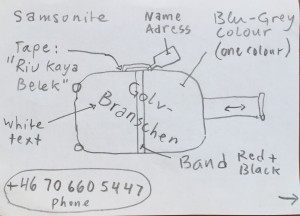 Samsonite
Name
Adress
Blu-Grey
Colour
(one colour)
Tape:
"Riu Kaya
Belek"
Golv-
Branschen
White
text
Band Red +
Black
+46 70 660 5447
phone